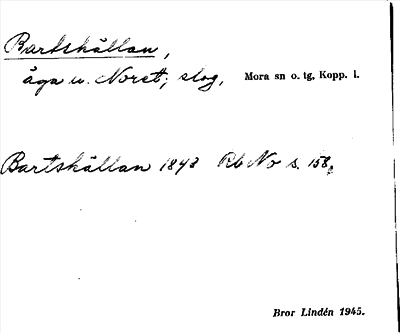 Bartskällan,
äga u. Noret; slog, Mora sn o. tg, Kopp. l.
Bartskällan 1843 Rb No s. 158.
Bror Lindén 1945.